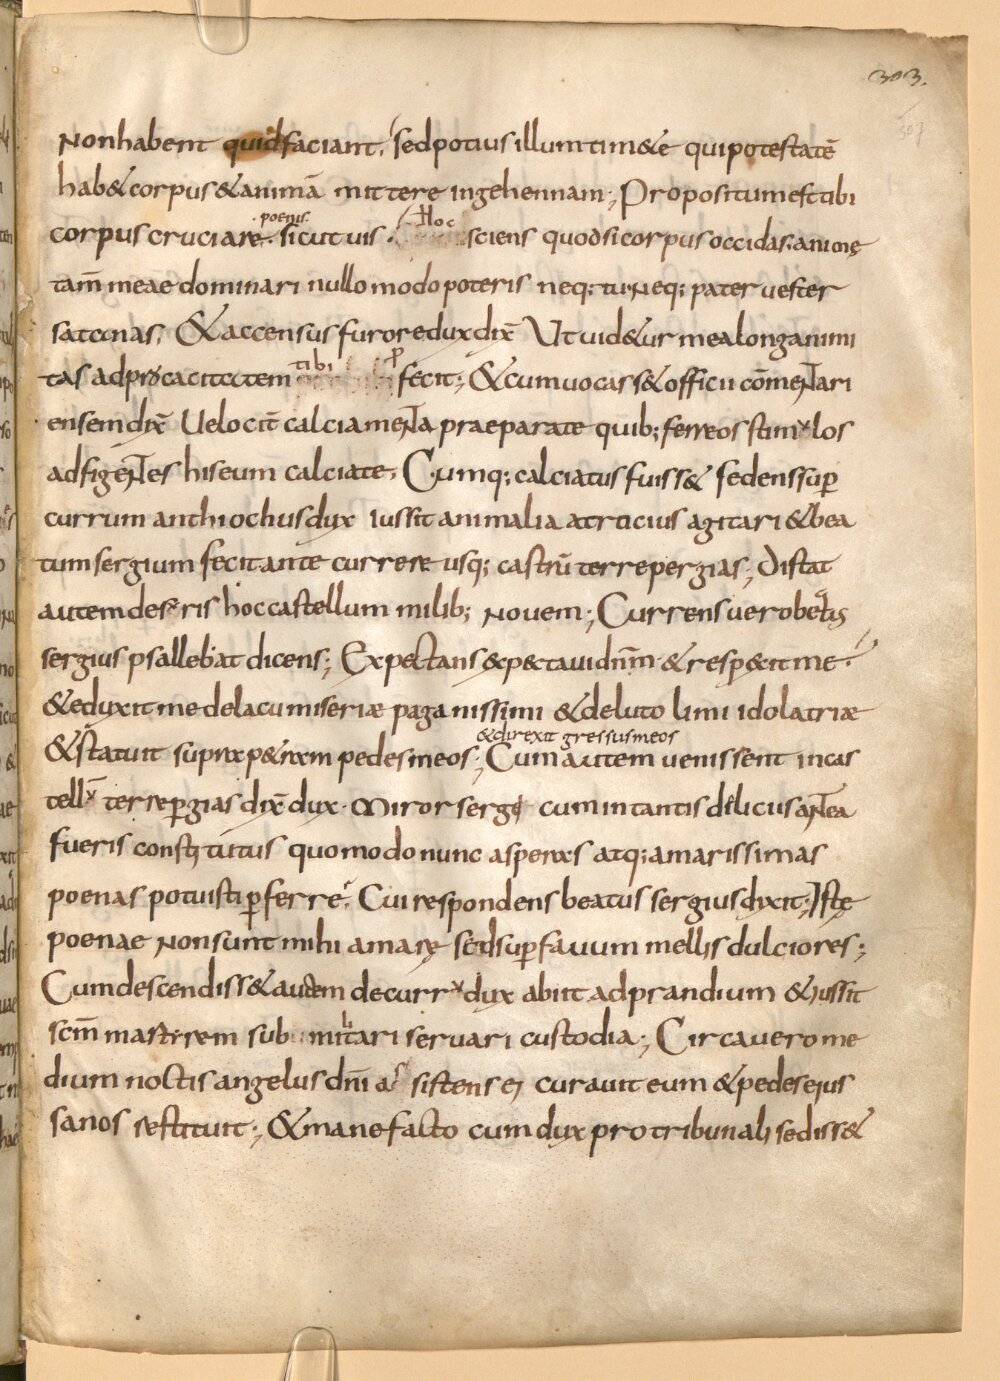 303.
307
Non habent quid faciant, sed potius illum tim& e qui potestatē
hab& corpus & animā mittere in gehennam; Propositum est tibi
poenis.
corpus cruciare. sicut uis. Hoc sciens quod si corpus occidas. animę
tam̄ meae dominari nullo modo poteris neq; tu neq; pater uester
satanas. & accensus furore dux dix̄ Ut uid&ur mea longanimi
tas ad procacitatem tibi p fecit; & cum uocass& officii cōmentari
ensem dix̄ Velocit̄ calciamenta praeparate quib; ferreos stimulos
adfigentes his eum calciate. Cumq; calciatus fuiss& sedens sup
currum anthiochus dux iussit animalia atrtius agitari & bea
tum sergium fecit ante currere usq; castrū terre pergias; Distat
autem desuris hoc castellum milib; nouem; Currens uero beatus
sergius psallebat dicens; Expectans exp&ctaui dnm̄ & resp&xit me.
& eduxit me de lacu miseriæ paganissimi & de luto limi idolatriæ
& direxit gressus meos
& statuit supra p&ram pedes meos; Cum autem uenissent in cas
tellū terre pergias dix̄ dux. Miror sergi cum in tantis dilicus antea
fueris constitutus quomodo nunc asperas atq; amarissimas
poenas potuisti pferre. Cui respondens beatus sergius dixit; Istę
poenae non sunt mihi amarę sed sup fauum mellis dulciores;
Cum descendiss& autem de curru dux abiit ad prandium & iussit
scm̄ martirem sub militari seruari custodia; Circa uero me
dium noctis angelus dn̄i assistens ei curauit eum & pedes eius
sanos restituit; & mane facto cum dux pro tribunali sediss&